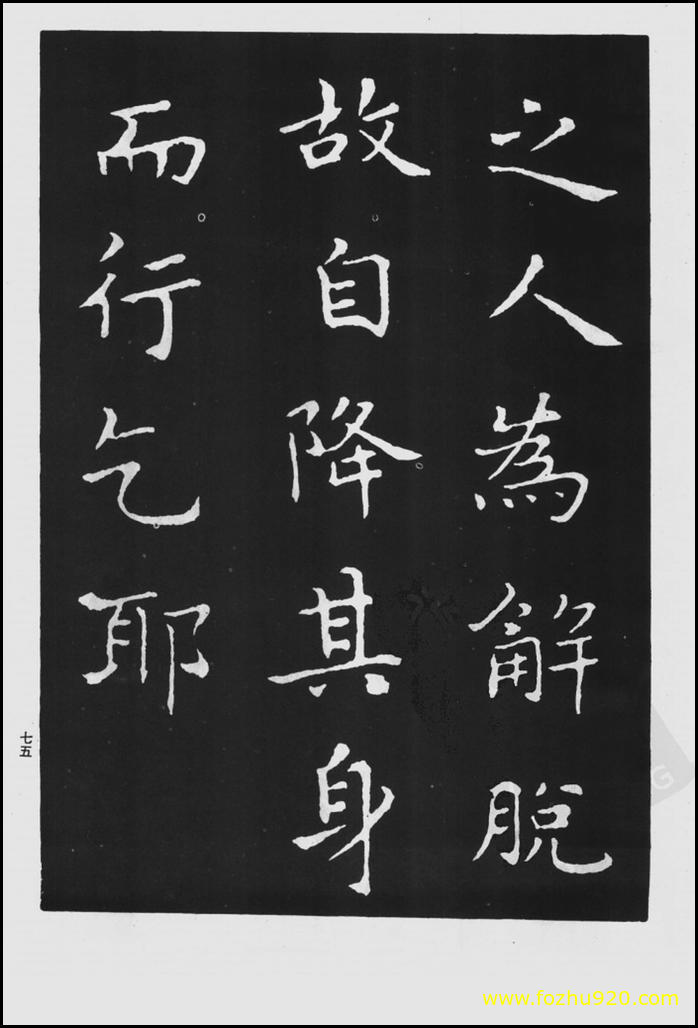 之人為解脫
故自降其身
而行乞耶
七五
www.fozhu920.com